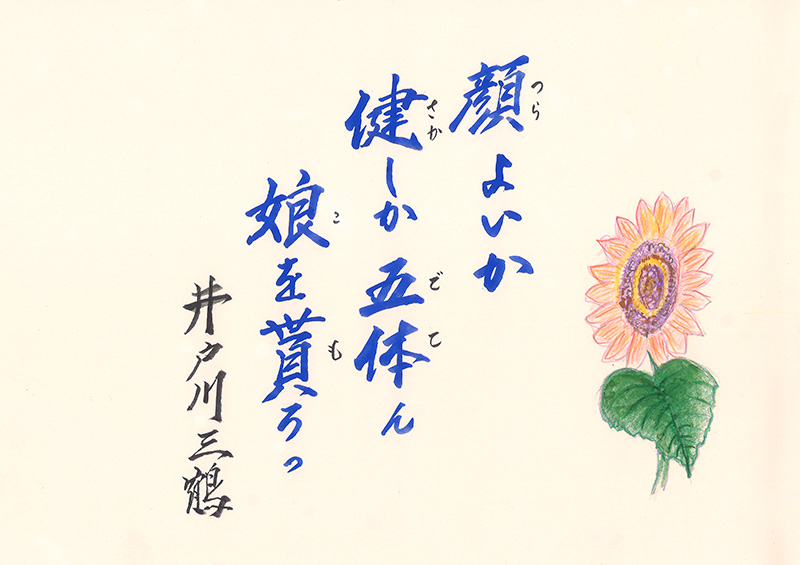 顔よいか
つら
健しか五体ん
さか でて
娘を貰ろっ
こ も
井戸川三鶴